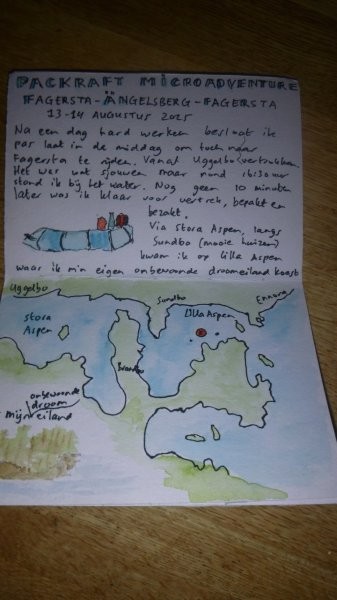 PACKRAFT MICROADVENTURE
FAGERSTA-ÄNGELSBERG-FAGERSTA
13-14 AUGUSTUS 2025
Na een dag hard werken besloot ik
pas laat in de middag om toch naar
Fagersta te rijden. Vanaf Uggelbo vertrokken.
Het was wat sjouwen maar rond 18:30 uur
stond ik bij het water. Nog geen 10 minuten
later was ik klaar voor vertrek, bepakt en
bezakt.
Via Stora Aspen, langs
Sundbo (mooie huizen)
kwam ik op Lilla Aspen
waar ik m'n eigen onbewoonde droomeiland koos
Uggelbo
Sundbo
Ennora
Stora
Aspen
Lilla Aspen
onbewoonde
droom
mijn eiland